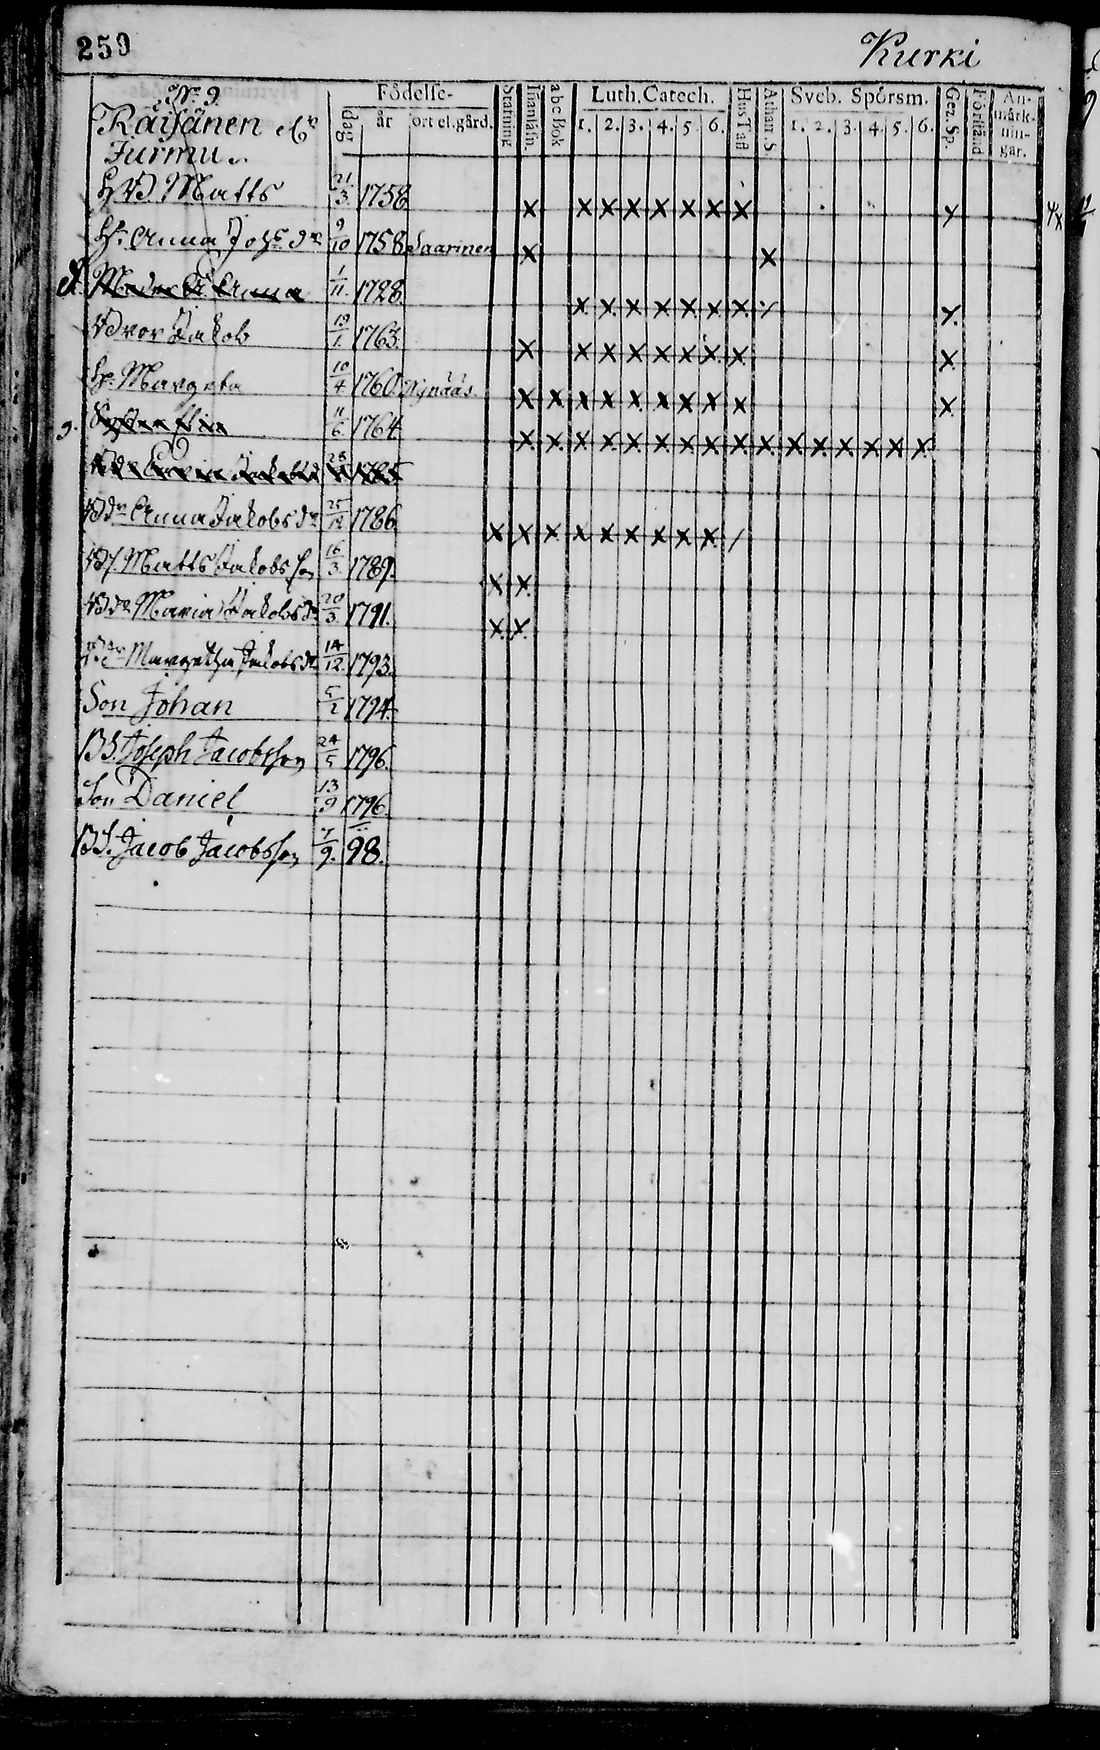 259
Kurki
N:o 9.
Räisänen
Jurmu.
Födelse-
dag
år
ort el. gård.
Stafning
Innanläsn.
abc-Bok
Luth. Catech.
1. 2. 3. 4. 5. 6.
Hus Tafl
Athan. S.
Sveb. Spörsm.
1. 2. 3. 4. 5. 6.
Gez. Sp.
Förstånd
An-
märk-
nin-
gar.
Matts 21/3. 1758 x x x x x x x x
H. Anna Joh:s dr 9/10 1758 Saarinen x x
Moder Anna 1/11. 1728. x x x x x x x
Jakob 19/1. 1763. x x x x x x x x x
H. Margeta 10/4 1760 x x x x x x x x x x
Syster 11/6. 1764 x x x x x x x x x x x x x x x x
Jakobsdr 1785
Anna Jakobsdr 25/12 1786 x x x x x x x x x /
Matts Jakobsson 16/3. 1789. x x
Maria Jakobsdr 20/3. 1791. x x
Margetha Jakobsdr 14/12. 1793.
Son Johan 1794.
BS. Joseph Jacobsson 24/5 1796.
Son Daniel 13/9 1796.
BS. Jacob Jacobsson 7/9. 98.